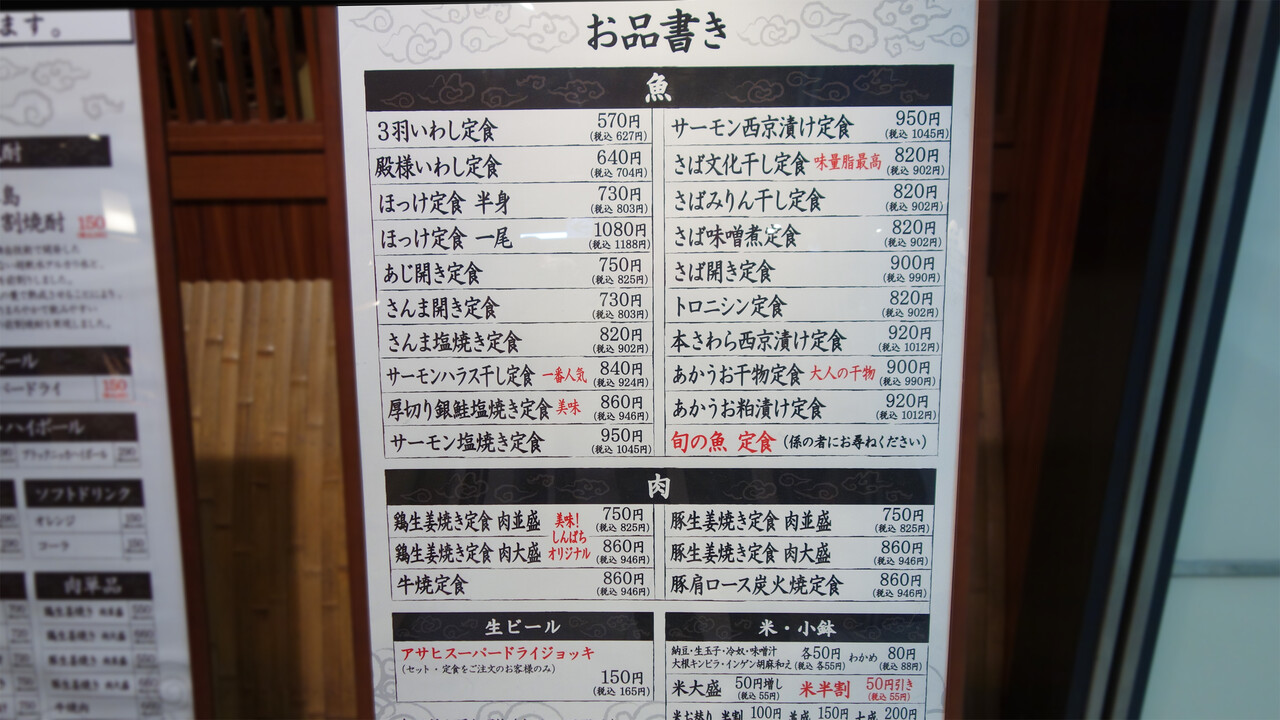 ます。
島
割焼酎 150
ビール
150
ハイボール
ソフトドリンク
オレンジ
コーラ
肉単品
お品書き
魚
3羽いわし定食 570円 (税込 627円)
殿様いわし定食 640円 (税込 704円)
ほっけ定食 半身 730円 (税込 803円)
ほっけ定食 一尾 1080円 (税込 1188円)
あじ開き定食 750円 (税込 825円)
さんま開き定食 730円 (税込 803円)
さんま塩焼き定食 820円 (税込 902円)
サーモンハラス干し定食 一番人気 840円 (税込 924円)
厚切り銀鮭塩焼き定食 美味 860円 (税込 946円)
サーモン塩焼き定食 950円 (税込 1045円)
サーモン西京漬け定食 950円 (税込 1045円)
さば文化干し定食 味量脂最高 820円 (税込 902円)
さばみりん干し定食 820円 (税込 902円)
さば味噌煮定食 820円 (税込 902円)
さば開き定食 900円 (税込 990円)
トロニシン定食 820円 (税込 902円)
本さわら西京漬け定食 920円 (税込 1012円)
あかうお干物定食 大人の干物 900円 (税込 990円)
あかうお粕漬け定食 920円 (税込 1012円)
旬の魚 定食 (係の者にお尋ねください)
肉
鶏生姜焼き定食 肉並盛 750円 (税込 825円)
美味!
しんぱち
オリジナル
鶏生姜焼き定食 肉大盛 860円 (税込 946円)
牛焼定食 860円 (税込 946円)
豚生姜焼き定食 肉並盛 750円 (税込 825円)
豚生姜焼き定食 肉大盛 860円 (税込 946円)
豚肩ロース炭火焼定食 860円 (税込 946円)
生ビール
アサヒスーパードライジョッキ
(セット・定食をご注文のお客様のみ)
150円
(税込 165円)
米・小鉢
納豆・生玉子・冷奴・味噌汁 各50円 わかめ 80円
大根キンピラ・インゲン胡麻和え (税込 各55円) (税込 88円)
米大盛 50円増し (税込 55円) 米半割 50円引き (税込 55円)
米お替り 半割 100円 並盛 150円 大盛 200円